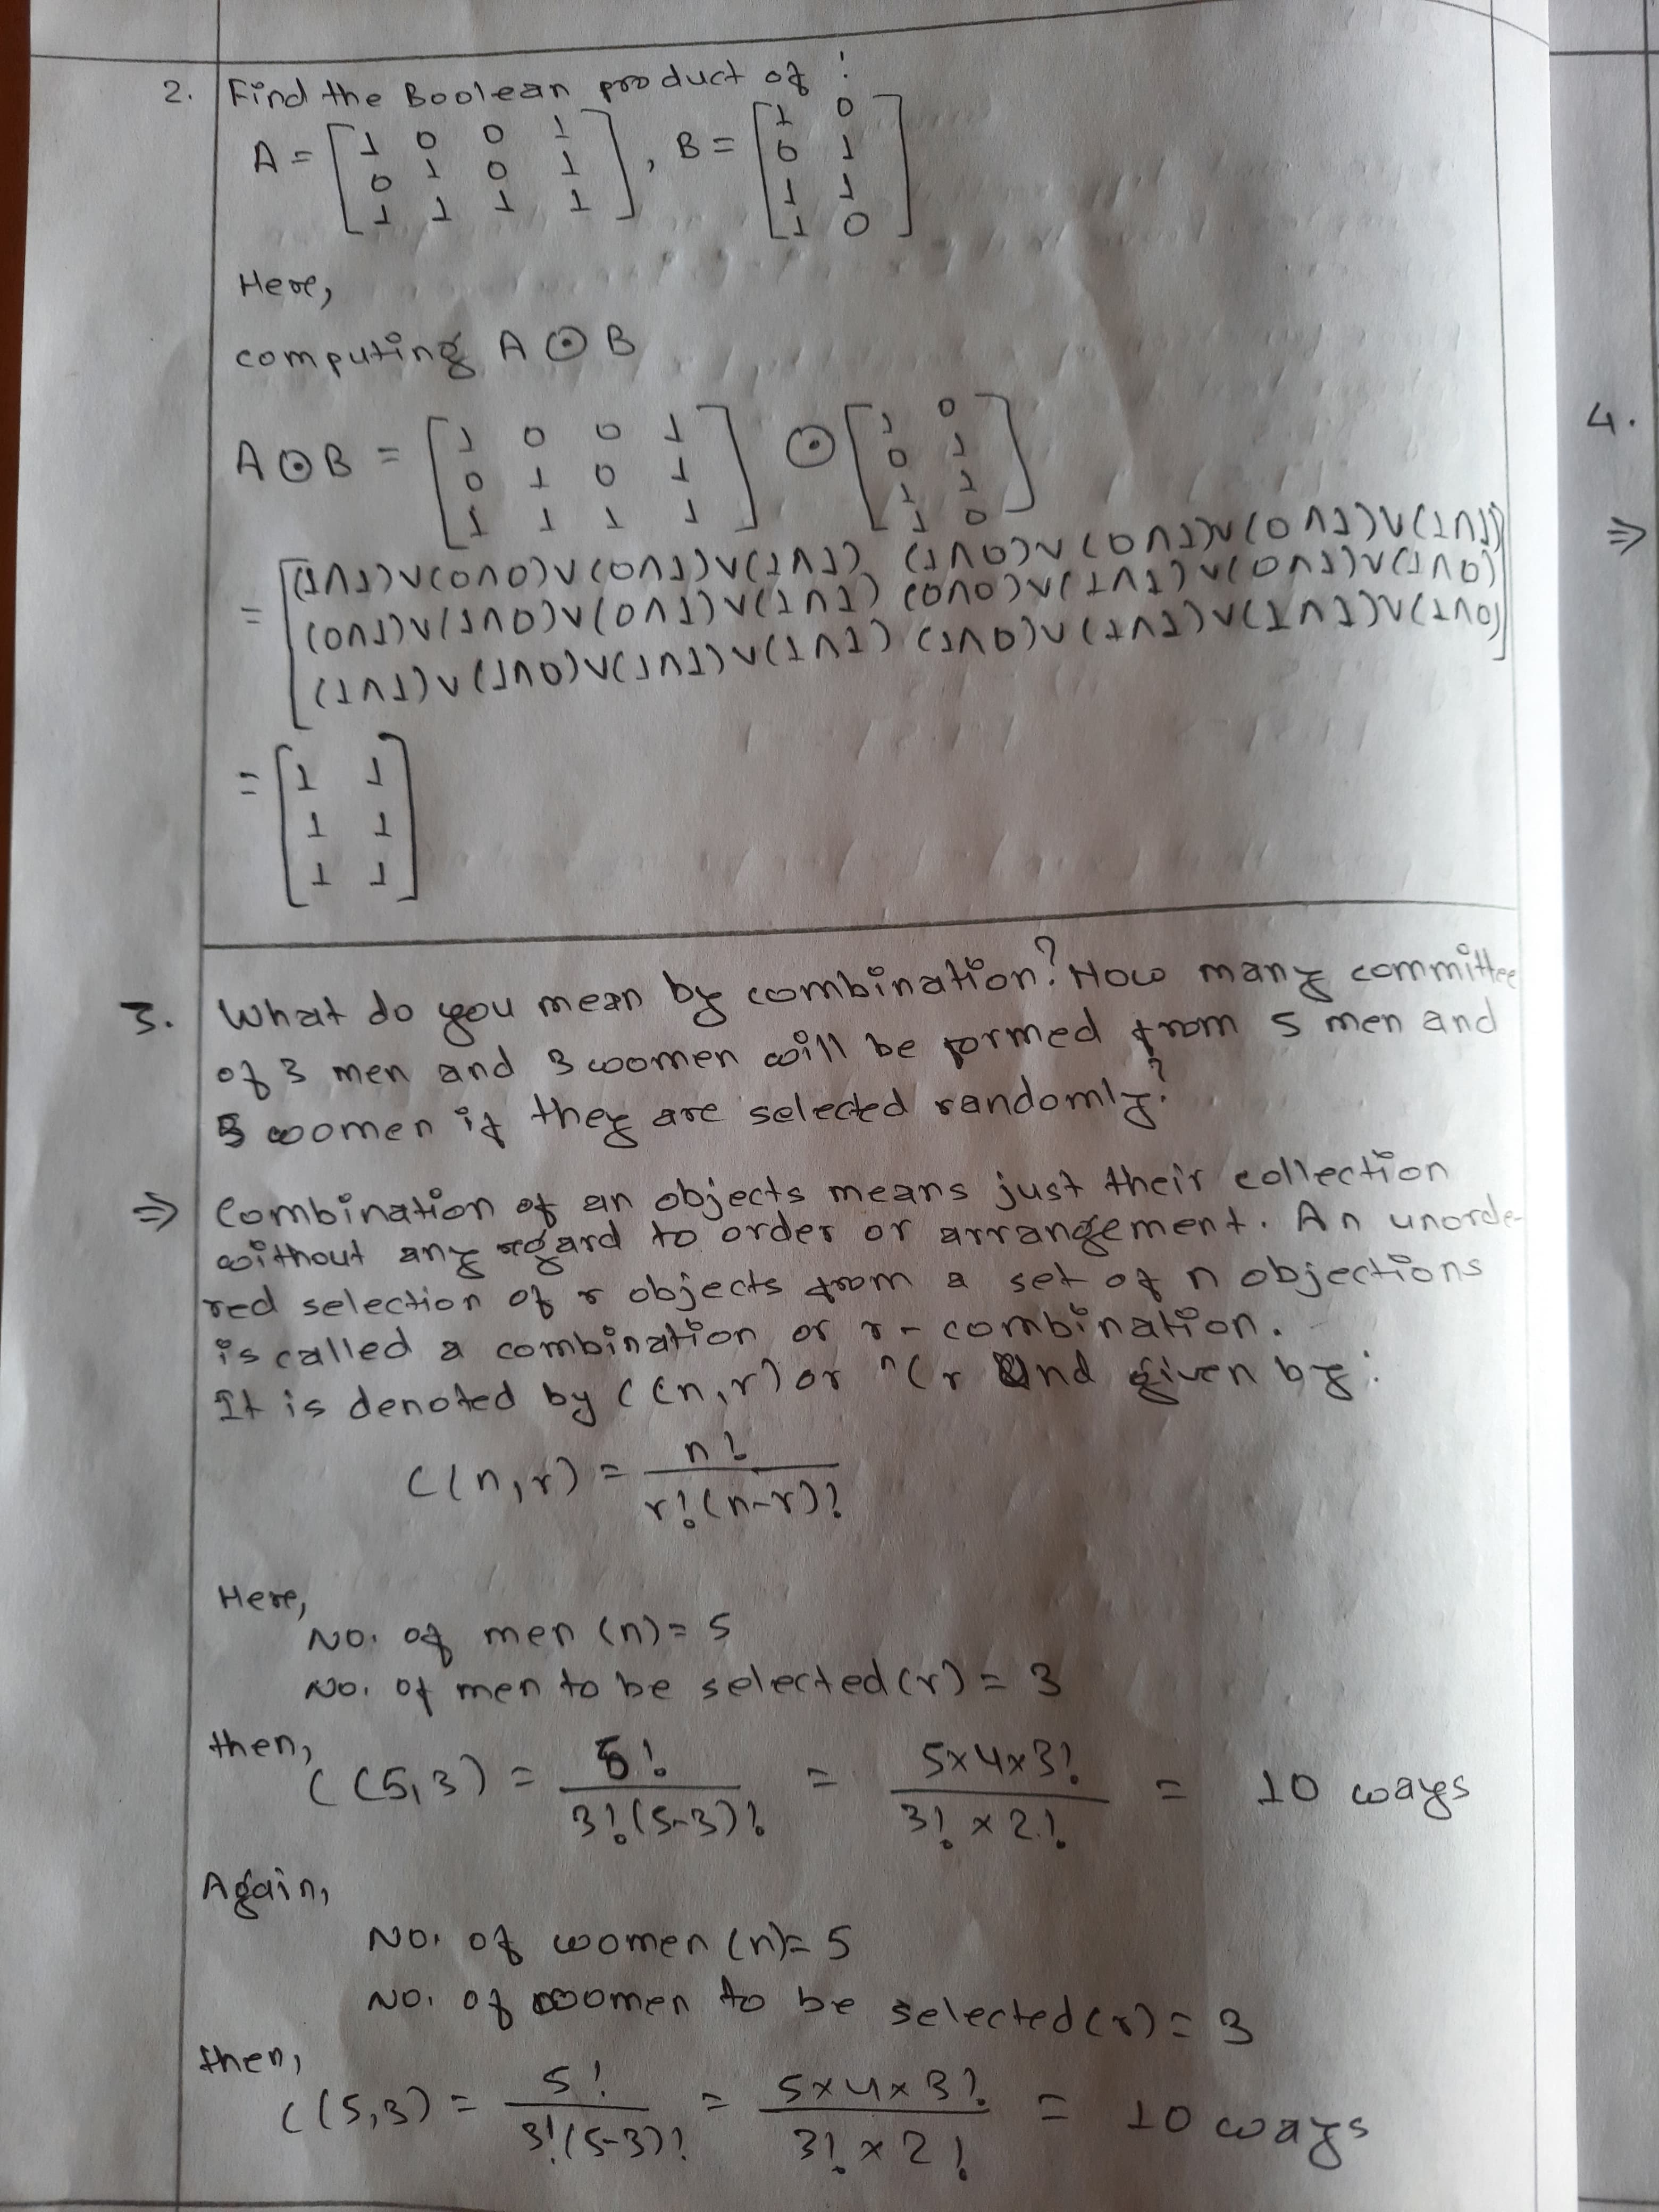 2. Find the Boolean product of :
A = [1 0 0 1
0 1 0 1
1 1 1 1], B = [1 0
0 1
1 1
1 0]
Here,
computing A ⊙ B
A ⊙ B = [1 0 0 1
0 1 0 1
1 1 1 1] ⊙ [1 0
0 1
1 1
1 0]
= [(1∧1)∨(0∧0)∨(0∧1)∨(1∧1) (1∧0)∨(0∧1)∨(0∧1)∨(1∧1)
(0∧1)∨(1∧0)∨(0∧1)∨(1∧1) (0∧0)∨(1∧1)∨(0∧1)∨(1∧0)
(1∧1)∨(1∧0)∨(1∧1)∨(1∧1) (1∧0)∨(1∧1)∨(1∧1)∨(1∧0)]
= [1 1
1 1
1 1]
3. What do you mean by combination? How many committee
of 3 men and 3 women will be formed from 5 men and
5 women if they are selected randomly?
⇒ Combination of an objects means just their collection
without any regard to order or arrangement. An unorde-
red selection of r objects from a set of n objections
is called a combination or r-combination.
It is denoted by C(n,r) or ⁿCr and given by:
C(n,r) = n! / r!(n-r)!
Here,
No. of men (n) = 5
No. of men to be selected (r) = 3
then,
C(5,3) = 5! / 3!(5-3)! = 5×4×3! / 3! × 2! = 10 ways
Again,
No. of women (n) = 5
No. of women to be selected (r) = 3
then,
C(5,3) = 5! / 3!(5-3)! = 5×4×3! / 3! × 2! = 10 ways
4.
⇒